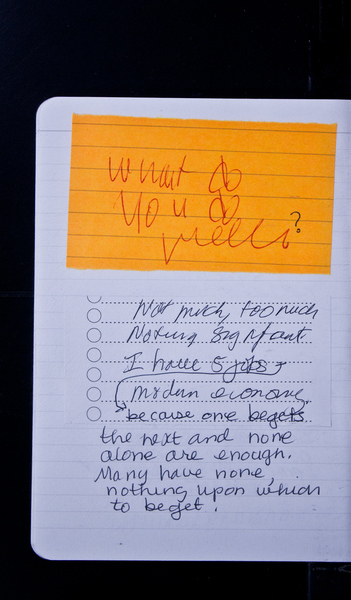 What do
you do
?
Not much, too much
Nothing significant
I have 5 jobs
modern economy
because one begets
the next and none
alone are enough.
Many have none,
nothing upon which
to beget.